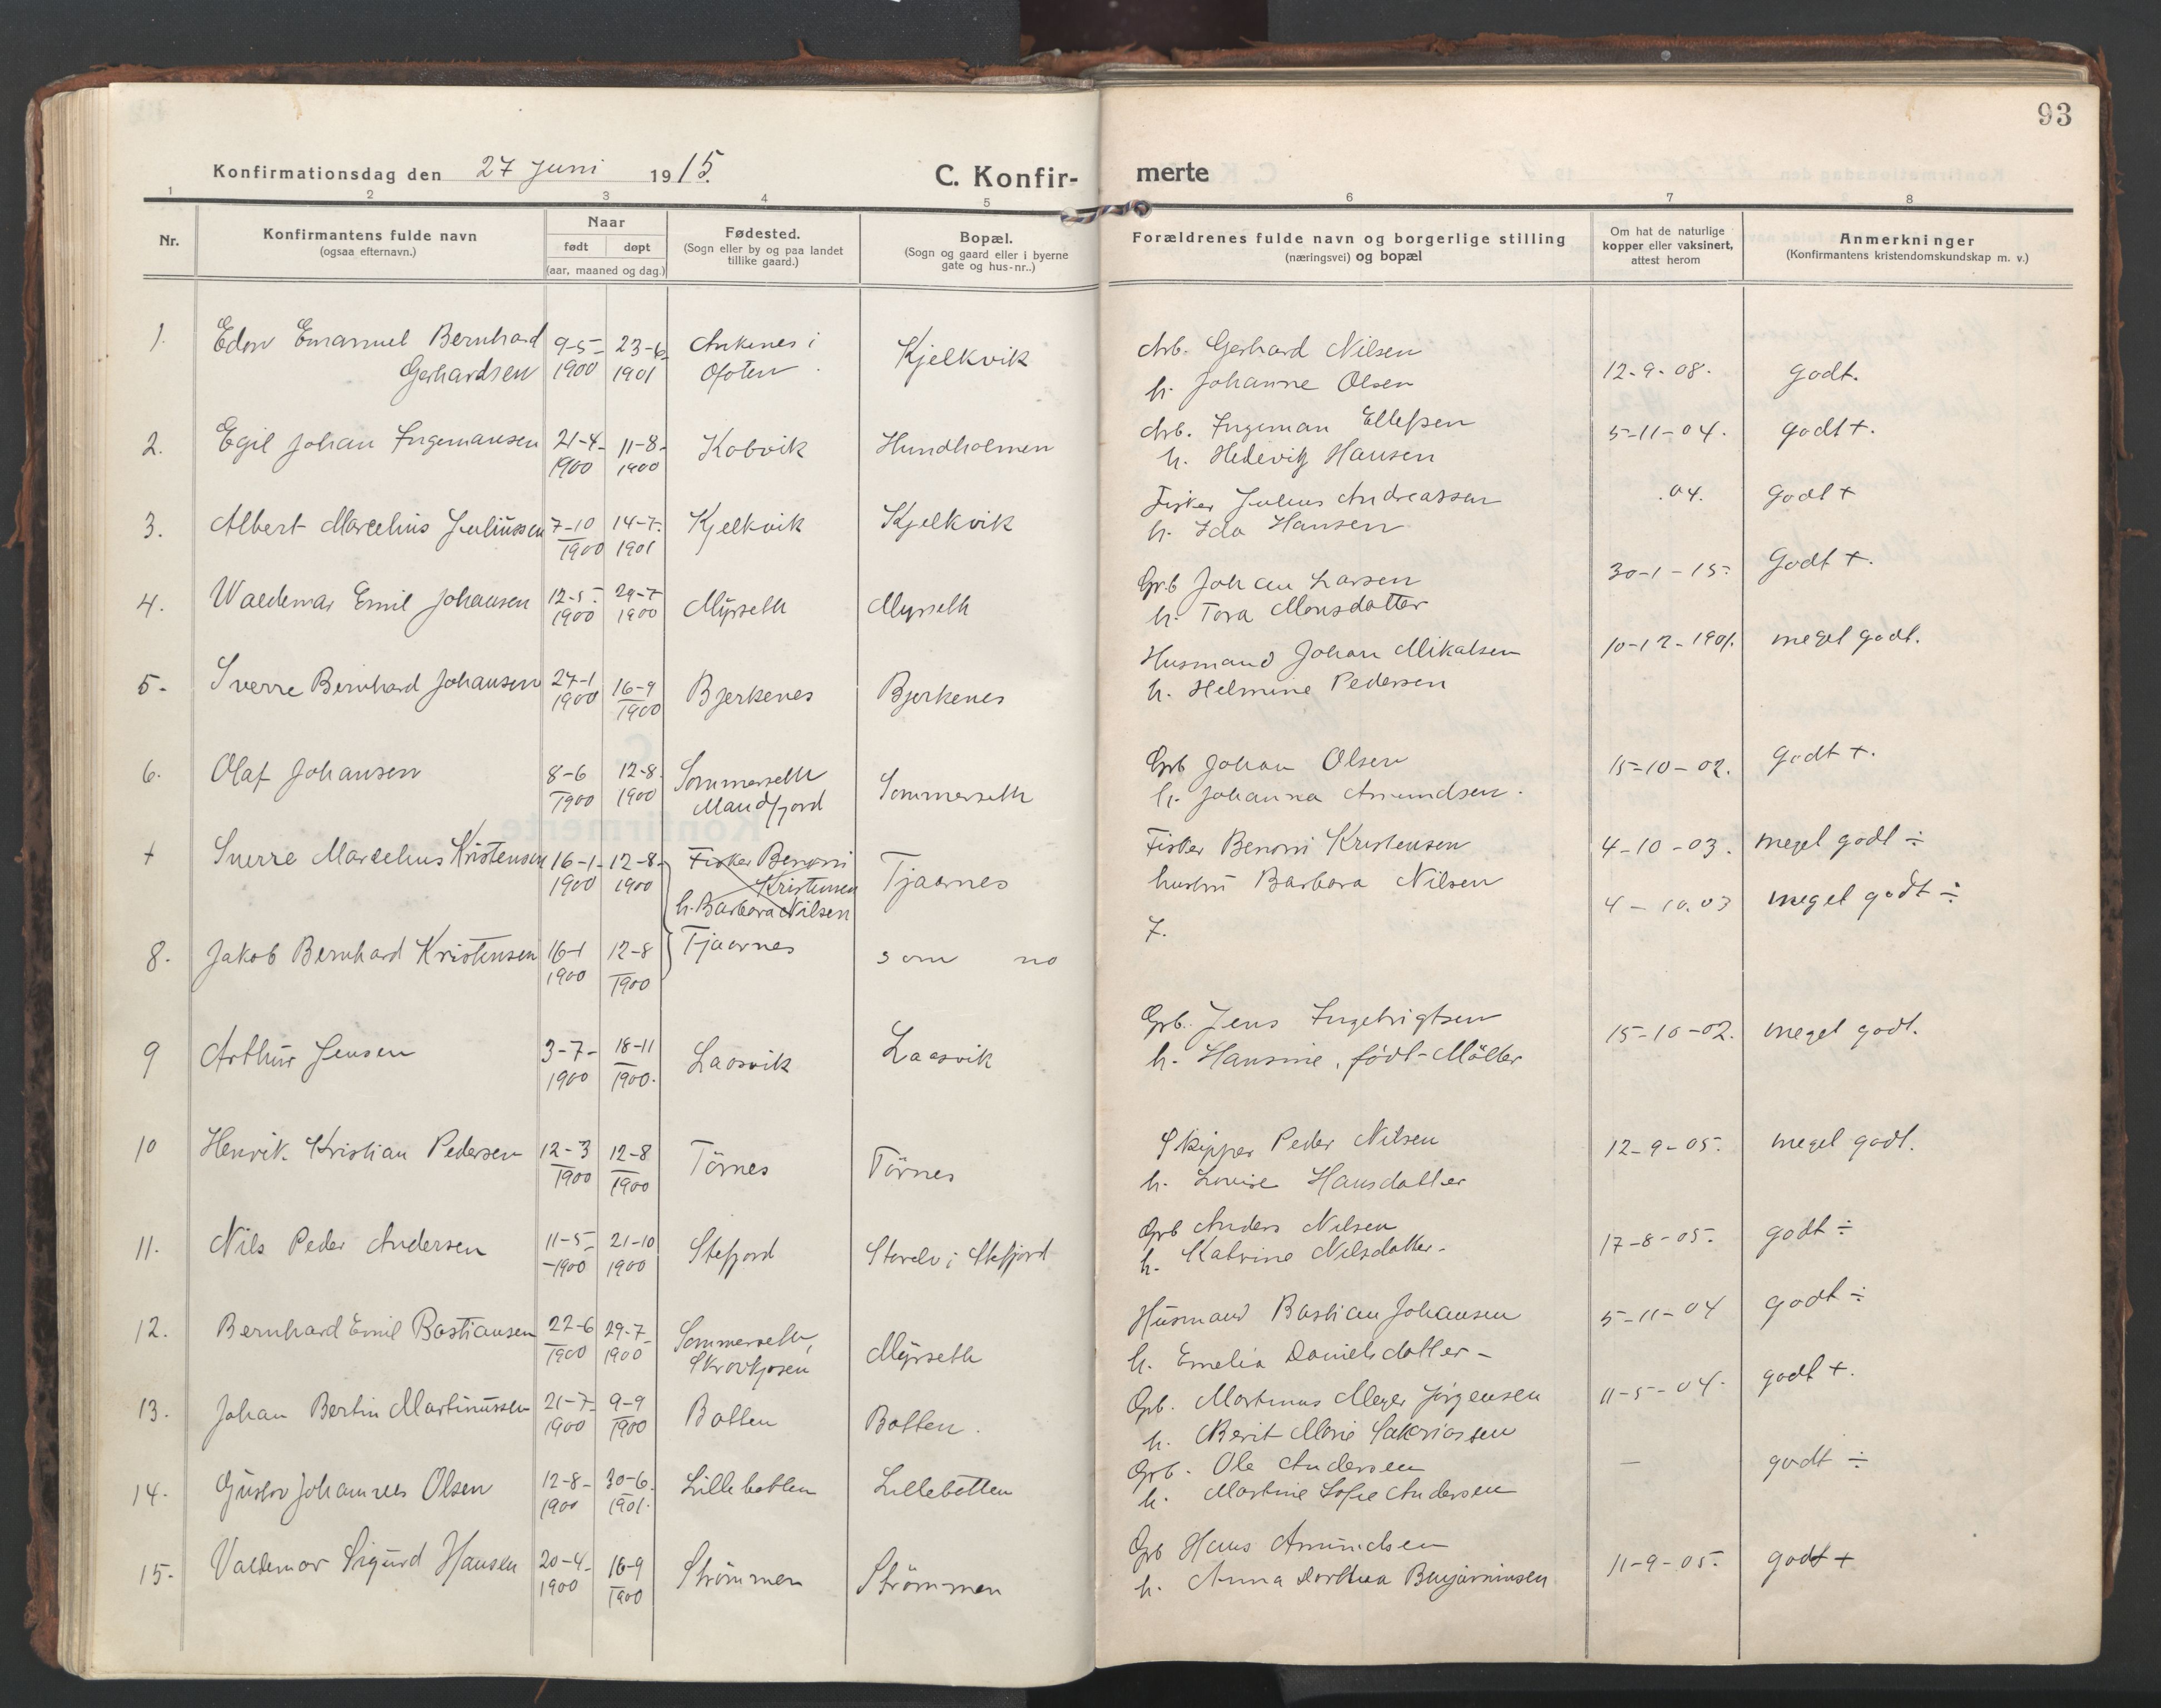 93
Konfirmationsdag den 27 Juni 1915.
C. Konfir-
merte
1 2 3 4 5 6 7 8
Nr.
Konfirmantens fulde navn
(ogsaa efternavn.)
Naar
født døpt
(aar, maaned og dag.)
Fødested.
(Sogn eller by og paa landet
tillike gaard.)
Bopæl.
(Sogn og gaard eller i byerne
gate og hus-nr..)
Forældrenes fulde navn og borgerlige stilling
(næringsvei) og bopæl
Om hat de naturlige
kopper eller vaksinert,
attest herom
Anmerkninger
(Konfirmantens kristendomskundskap m. v.)
1. Edon Emanuel Bernhard 9-5- 23-6 Ankenes i Kjelkvik Arb. Gerhard Nilsen 12-9-08. godt.
Gerhardsen 1900 1901 Ofoten h. Johanne Olsen
2. Egil Johan Ingemansen 21-4- 11-8- Kobvik Hundholmen Arb. Ingeman Ellefsen 5-11-04. godt +.
1900 1900 h. Hedevig Hansen
3. Albert Marcelius Juliussen 7-10 14-7- Kjelkvik Kjelkvik Fisker Julius Andreassen .04. godt +
1900 1901 h. Ida Hansen
4. Waldemar Emil Johansen 12-5- 29-7 Myrseth Myrseth Grb Johan Larsen 30-1-15- Godt +.
1900 1900 h. Tora Monsdatter
5- Sverre Bernhard Johansen 27-1 16-9 Bjerkenes Bjerkenes Husmand Johan Mikalsen 10-12-1901. meget godt.
1900 1900 h. Helmine Pedersen
6. Olaf Johansen 8-6 12-8 Sommerseth Sommerseth Grb Johan Olsen 15-10-02. godt +.
1900 1900 Mandfjord h. Johanna Amundsen.
+ Sverre Marcelius Kristensen 16-1- 12-8- Fisker Benoni Tjaarnes Fisker Benoni Kristensen 4-10-03. meget godt ÷
1900 1900 Kristensen hustru Barbara Nilsen
h. Barbara Nilsen
8. Jakob Bernhard Kristensen 16-1 12-8 Tjaarnes som no 7. 4-10.03 meget godt ÷
1900 1900
9 Arthur Jensen 3-7- 18-11 Laasvik Laasvik Grb. Jens Ingebrigtsen 15-10-02. meget godt.
1900 1900. h. Hansine, født Möller
10 Henrik Kristian Pedersen 12-3 12-8 Törnes Törnes Skipper Peder Nilsen 12-9-05. meget godt.
1900 1900 h. Lovise Hansdatter
11. Nils Peder Andersen 11-5- 21-10 Stefjord Storelv i Stefjord Grb Anders Nilsen 17-8-05- godt ÷
1900 1900 h. Katrine Nilsdatter-
12. Bernhard Emil Bastiansen 22-6 29-7- Sommerseth, Myrseth Husmand Bastian Johansen 5-11-04 godt ÷
1900 1900 Skrovkjosen h. Emelia Danielsdatter-
13. Johan Bertin Martinussen 21-7- 9-9 Botten Botten. Grb. Martinus Meyer Jörgensen 11-5-04- godt +.
1900 1900 h. Berit Marie Sakriassen
14. Gustav Johannes Olsen 12-8- 30-6. Lillebotten Lillebotten Grb. Ole Andersen — godt ÷
1900 1901. h. Martine Sofie Andersen
15- Valdemar Sigurd Hansen 20-4- 16-9 Strömmen Strömmen Grb Hans Amundsen 11-9-05- godt +
1900 1900 h. Anna Dorthea Benjaminsen